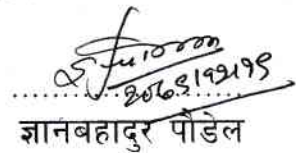 २०७९।१२।१९
..............................
ज्ञानबहादुर पौडेल